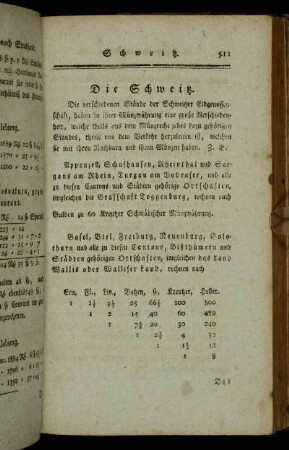 Schweitz. 511
Die Schweitz.
Die verschiedenen Stände der Schweitzer Eidgenossen-
schaft, haben in ihrer Münzwährung eine große Verschieden-
heit, welche theils aus dem Münzrecht jedes dazu gehörigen
Standes, theils von dem Verkehr herzuleiten ist, welchen
sie mit ihren Nachbarn und ihren Münzen haben. Z. E.
Appenzell, Schafhausen, Rheinthal und Sar-
gans am Rhein, Turgau am Bodensee, und alle
zu diesen Cantons und Städten gehörige Ortschaften,
imgleichen die Grafschaft Toggenburg, rechnen nach
Gulden zu 60 Kreutzer Schwäbischer Münzwährung.
Basel, Biel, Freiburg, Neuenburg, Solo-
thurn und alle zu diesen Cantons, Bißthümern und
Städten gehörigen Ortschaften, imgleichen das Land
Wallis oder Walliser Land, rechnen nach
Fl. Liv. Batzen, ß. Kreutzer, Heller.
1 2½ 3⅓ 25 66⅔ 100 800
1 2 15 40 60 480
1 7½ 20 30 240
1 2⅔ 4 32
1 1½ 12
1 8
Das